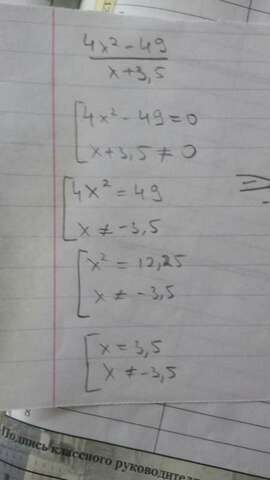 4x² - 49
x + 3,5
4x² - 49 = 0
x + 3,5 ≠ 0
4x² = 49
x ≠ -3,5
x² = 12,25
x ≠ -3,5
x = 3,5
x ≠ -3,5
8
Подпись классного руководителя